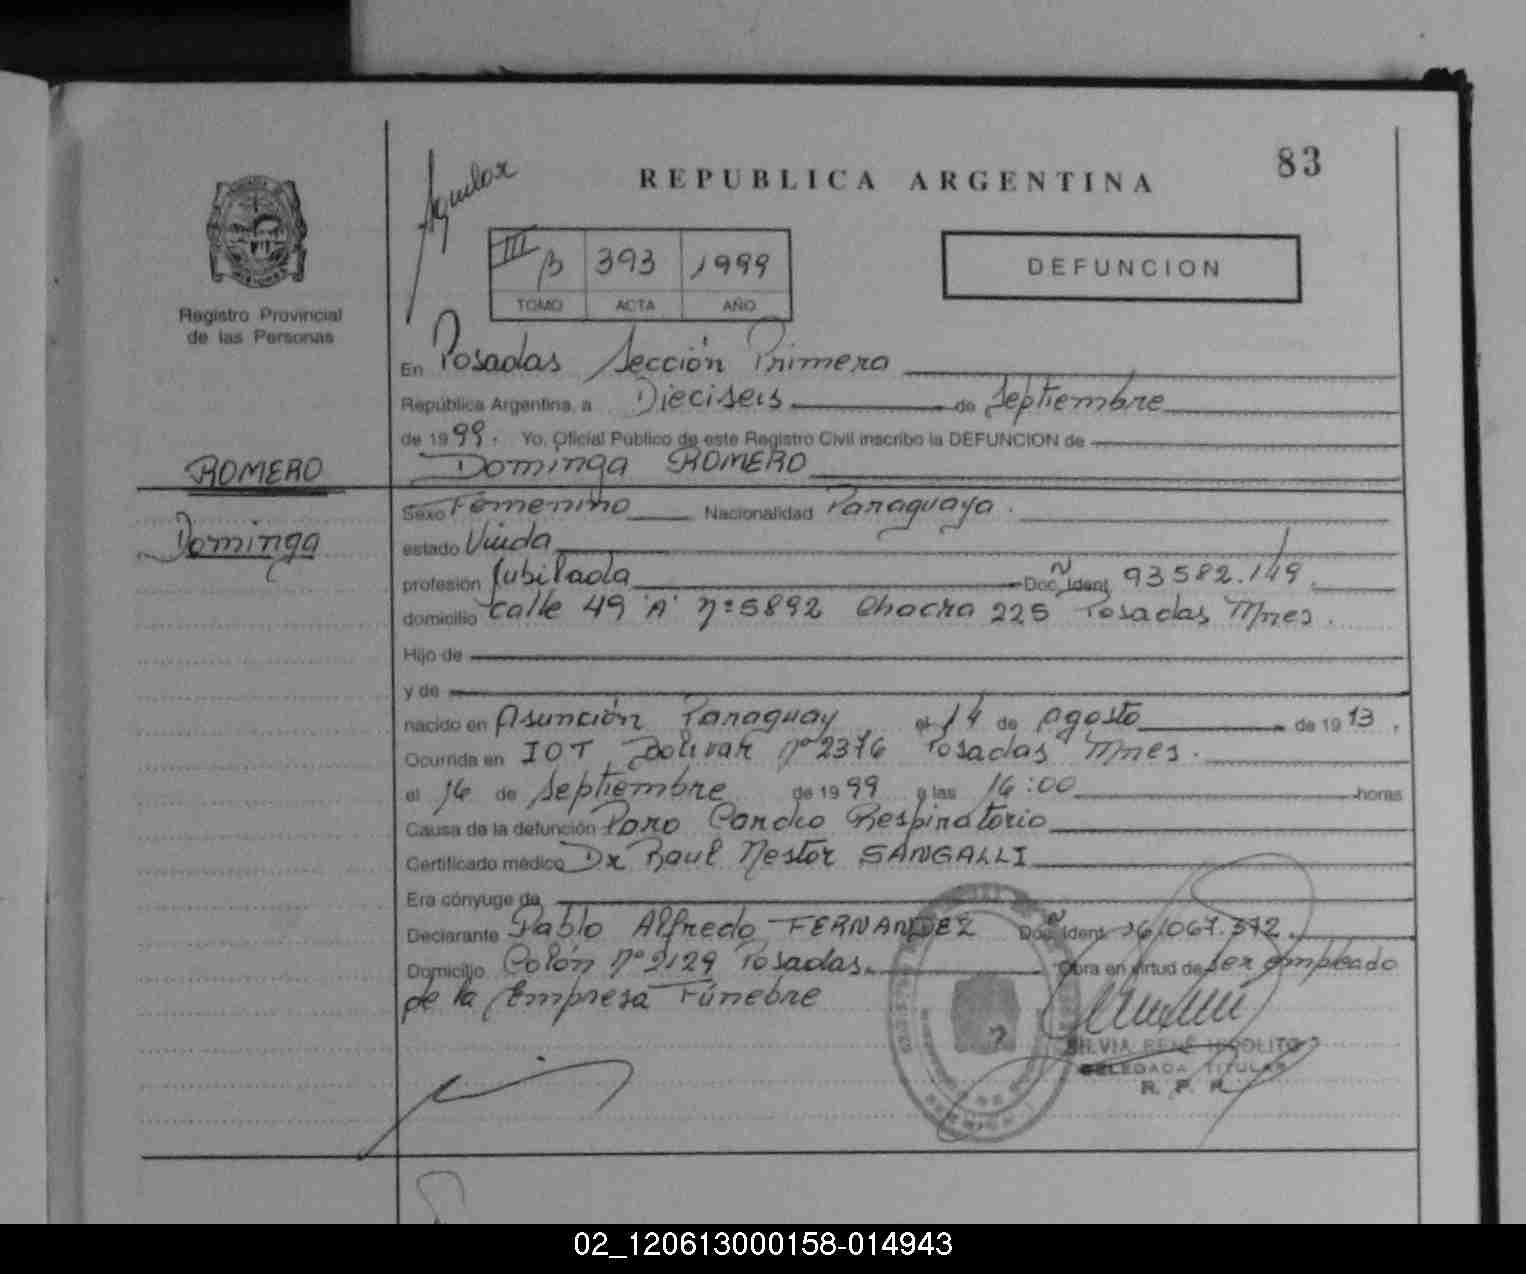 83
Aguilar
REPUBLICA ARGENTINA
III B 393 1999
TOMO ACTA AÑO
DEFUNCION
Registro Provincial
de las Personas
En Posadas Sección Primera
República Argentina, a Dieciseis de Septiembre
de 1999. Yo, Oficial Público de este Registro Civil inscribo la DEFUNCION de
ROMERO
Dominga ROMERO
Sexo Femenino Nacionalidad Paraguaya.
Dominga
estado Viuda
profesión Jubilada Doc. Ident. Nº 93582.149.
domicilio calle 49 "A" nº 5892 Chacra 225 Posadas Mnes.
Hijo de
y de
nacido en Asunción Paraguay el 14 de agosto de 1913.
Ocurrida en IOT, Bolívar nº 2376 Posadas Mnes.
el 16 de Septiembre de 1999 a las 16:00 horas
Causa de la defunción Paro Cardio Respiratorio
Certificado médico Dr Raul Nestor SANGALLI
Era cónyuge de
Declarante Pablo Alfredo FERNANDEZ Doc. Ident. Nº 26.067.572.
Domicilio Colón nº 2129 Posadas. Obra en virtud de ser empleado
de la Empresa Fúnebre
SILVIA RENE IPPOLITO
DELEGADA TITULAR
R. P. P.
02_120613000158-014943